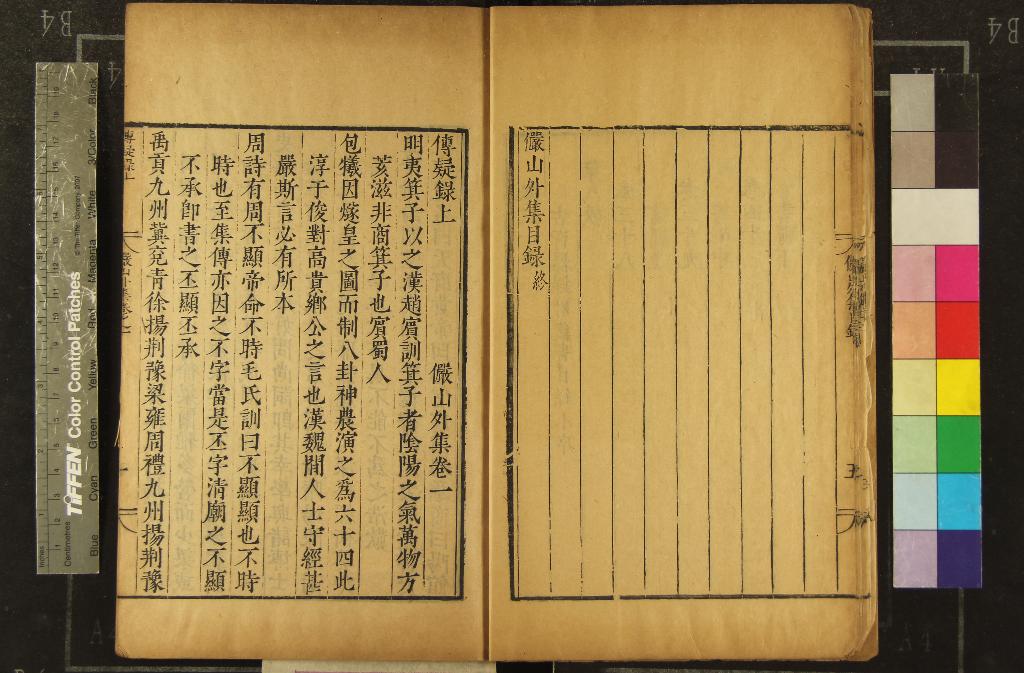 儼山外集目錄終
傳疑錄上 儼山外集卷一
明夷箕子以之漢趙賔訓箕子者陰陽之氣萬物方
荄滋非商箕子也賔蜀人
包犧因燧皇之圖而制八卦神農演之爲六十四此
淳于俊對高貴鄉公之言也漢魏間人士守經甚
嚴斯言必有所本
周詩有周不顯帝命不時毛氏訓曰不顯顯也不時
時也至集傳亦因之不字當是丕字清廟之不顯
不承卽書之丕顯丕承
禹貢九州冀兗青徐揚荆豫梁雍周禮九州揚荆豫
TIFFEN Color Control Patches
© The Tiffen Company, 2007
Inches
Centimetres
Blue
Cyan
Green
Yellow
Red
Magenta
White
3/Color
Black
B4
B4
A4